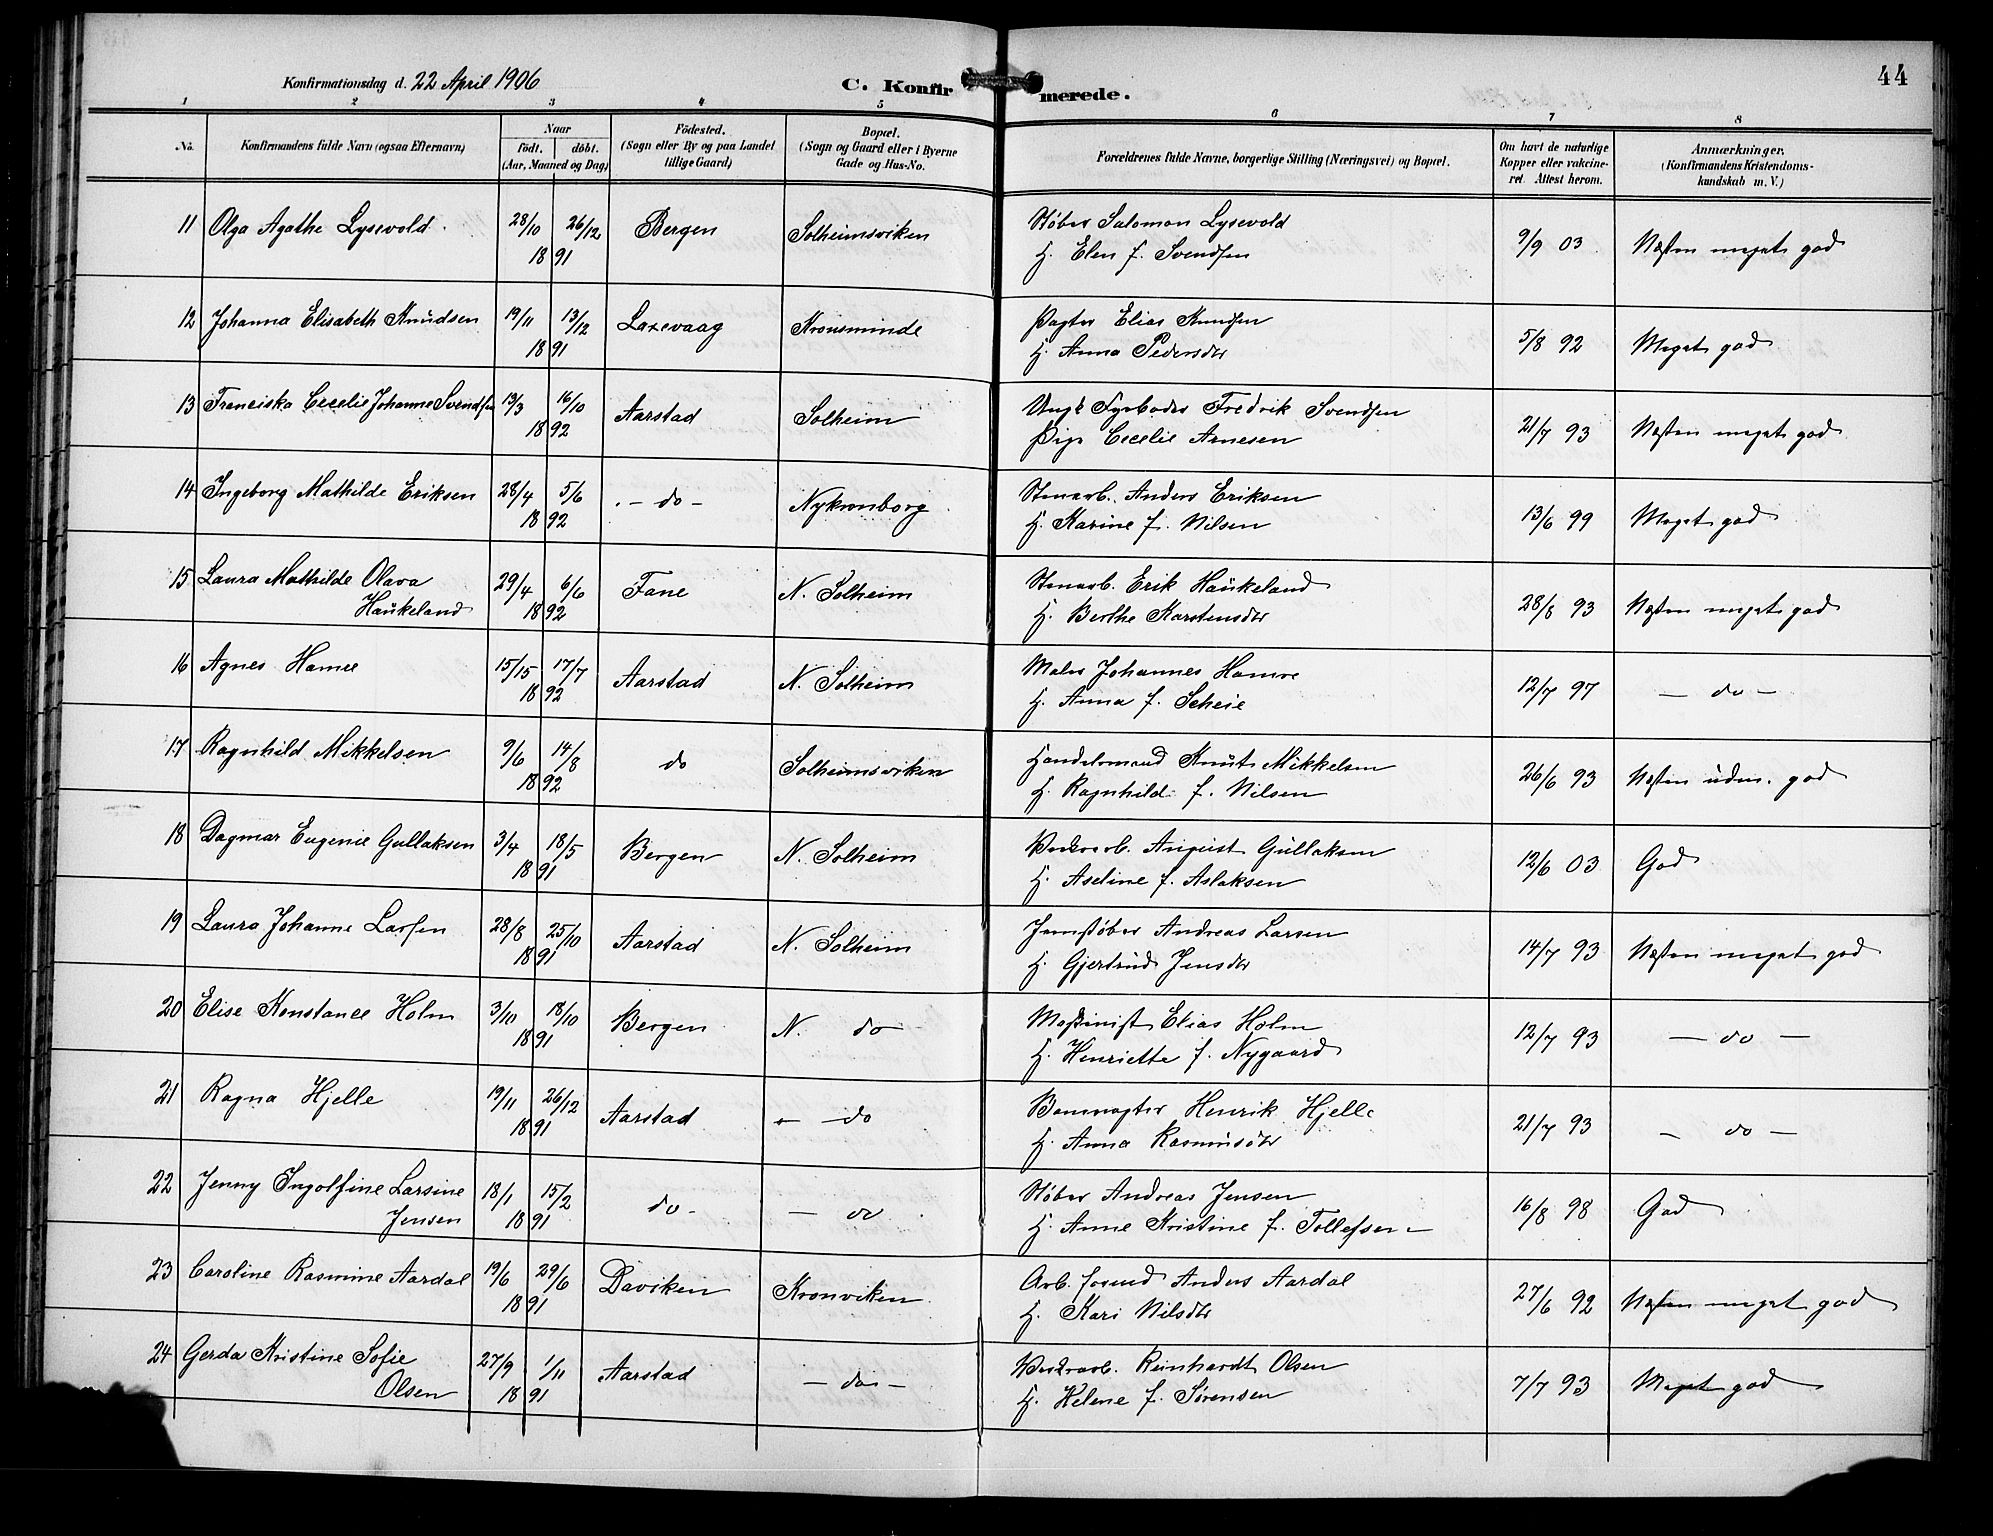 44
Konfirmationsdag d. 22 April 1906
C. Konfirmerede.
1 2 3 4 5 6 7 8
No.
Konfirmandens fulde Navn (ogsaa Efternavn)
Naar
födt. döbt.
(Aar, Maaned og Dag)
Födested.
(Sogn eller By og paa Landet
tillige Gaard)
Bopæl.
(Sogn og Gaard eller i Byerne
Gade og Hus-No.
Forældrenes fulde Navne, borgerlige Stilling (Næringsvei) og Bopæl.
Om havt de naturlige
Kopper eller vakcine-
ret. Attest herom.
Anmærkninger.
(Konfirmandens Kristendoms-
kundskab m. V.)
11 Olga Agathe Lysevold 28/10 26/12 Bergen Solheimsviken Støber Salomon Lysevold 9/9 03 Næsten meget god
18 91 H. Elen f. Svendsen
12 Johanna Elisabeth Knudsen 19/11 13/12 Laxevaag Kronsminde Pagter Elias Knudsen 5/8 92 Meget god
18 91 H. Anna Pedersdtr
13 Franciska Cecelie Johanne Svendsen 13/3 16/10 Aarstad Solheim Ungk Fyrbøder Fredrik Svendsen 21/7 93 Næsten meget god
18 92 Pige Cecelie Arnesen
14 Ingeborg Mathilde Eriksen 28/4 5/6 - do - Nykronborg Stenarb. Anders Eriksen 13/6 99 Meget god
18 92 H. Karine f. Nilsen
15 Laura Mathilde Olava 29/4 6/6 Fane N. Solheim Stenarb. Erik Haukeland 28/8 93 Næsten meget god
Haukeland 18 92 H. Berthe Karstensdtr
16 Agnes Hamre 15/15 17/7 Aarstad N. Solheim Maler Johannes Hamre 12/7 97 - do -
18 92 H. Anna f. Scheie
17 Ragnhild Mikkelsen 9/6 14/8 do Solheimsviken Handelsmand Knut Mikkelsen 26/6 93 Næsten udm. god
18 92 H. Ragnhild f. Nilsen
18 Dagmar Eugenie Gullaksen 3/4 18/5 Bergen N. Solheim Værkarb. August Gullaksen 12/6 03 God
18 91 H. Aseline f. Aslaksen
19 Laura Johanne Larsen 28/8 25/10 Aarstad N. Solheim Jernstøber Andreas Larsen 14/7 93 Næsten meget god
18 91 H. Gjertrud Jensdtr
20 Elise Konstance Holm 3/10 18/10 Bergen N. do Maskinist Elias Holm 12/7 93 - do -
18 91 H. Henriette f. Nygaard
21 Ragna Hjelle 19/11 26/12 Aarstad - do Banevogter Henrik Hjelle 21/7 93 - do -
18 91 H. Anna Rasmusdtr
22 Jenny Ingolfine Larsine 18/1 15/2 do - - do Støber Andreas Jensen 16/8 98 God
Jensen 18 91 H. Anne Kristine f. Tollefsen
23 Caroline Rasmine Aardal 19/6 29/6 Daviken Kronviken Arb. formd Anders Aardal 27/6 92 Næsten meget god
18 91 H. Kari Nilsdtr
24 Gerda Kristine Sofie 27/9 1/11 Aarstad - do - Værkarb. Reinhardt Olsen 7/7 93 Meget god
Olsen 18 91 H. Helene f. Sørensen